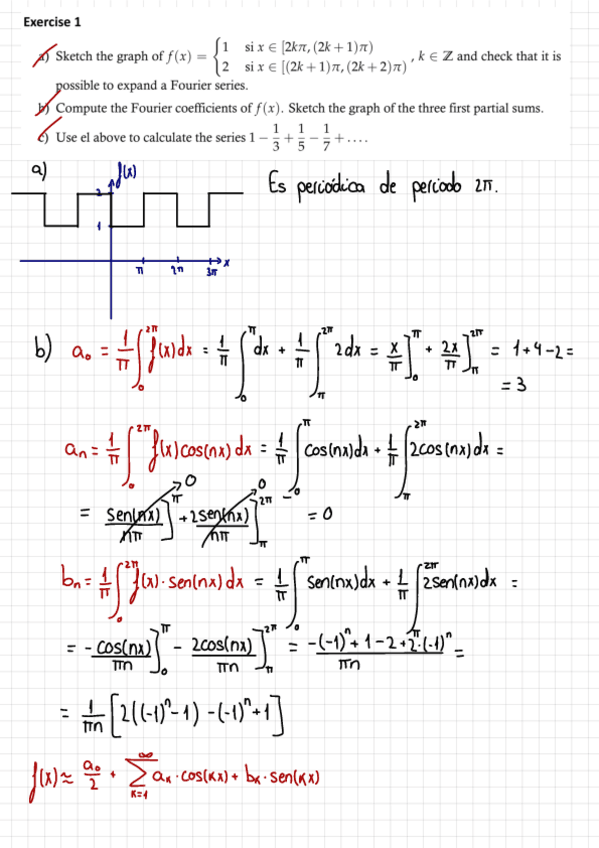 Exercise 1
a) Sketch the graph of f(x) = { 1 si x ∈ [2kπ, (2k + 1)π) 2 si x ∈ [(2k + 1)π, (2k + 2)π) , k ∈ ℤ and check that it is
possible to expand a Fourier series.
b) Compute the Fourier coefficients of f(x). Sketch the graph of the three first partial sums.
c) Use el above to calculate the series 1 − 1/3 + 1/5 − 1/7 + ....
a) f(x) Es periódica de periodo 2π.
2
1
π 2π 3π x
b) a₀ = 1/π ∫₀^2π f(x)dx = 1/π ∫₀^π dx + 1/π ∫_π^2π 2dx = x/π ]₀^π + 2x/π ]_π^2π = 1+4-2 =
= 3
aₙ = 1/π ∫₀^2π f(x)cos(nx)dx = 1/π ∫₀^π cos(nx)dx + 1/π ∫_π^2π 2cos(nx)dx =
= sen(nx)/nπ ]₀^π → 0 + 2sen(nx)/nπ ]_π^2π → 0 = 0
bₙ = 1/π ∫₀^2π f(x)·sen(nx)dx = 1/π ∫₀^π sen(nx)dx + 1/π ∫_π^2π 2sen(nx)dx =
= -cos(nx)/πn ]₀^π - 2cos(nx)/πn ]_π^2π = -(-1)ⁿ+1-2+2·(-1)ⁿ/πn =
= 1/πn [2((-1)ⁿ-1) -(-1)ⁿ+1]
f(x) ≈ a₀/2 + ∑_{k=1}^∞ aₖ·cos(kx) + bₖ·sen(kx)